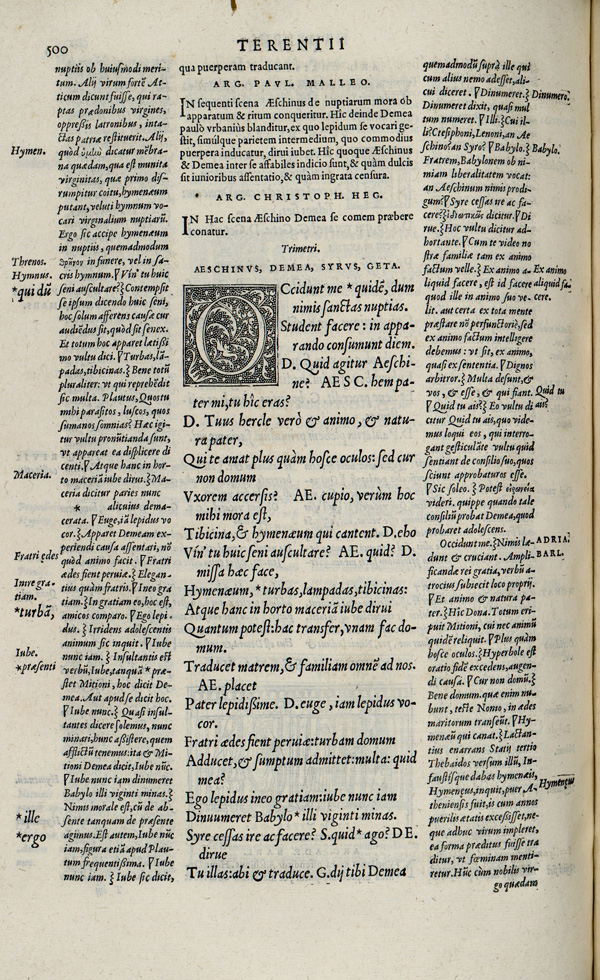 500
TERENTII
nuptiis ob huiusmodi meri-
tum. Alij virum fortē At-
ticum dicunt fuisse, qui ra-
ptas prædonibus virgines,
oppreßis latronibus, inta-
ctas patriæ restituerit. Alij,
quòd ὑμὴν dicatur mēbra-
na quædam, qua est munita
virginitas, quæ primo dis-
rumpitur coitu, hymenæum
putant, veluti hymnum vo-
cari virginalium nuptiarū.
Ergo sic accipe hymenæum
in nuptiis, quemadmodum
θρῆνον in funere, vel in sa-
cris hymnum. ¶Vin' tu huic
seni auscultare? ξ Contempsit
se ipsum dicendo huic seni,
hoc solum afferens causæ cur
audiēdus sit, quòd sit senex.
Et totum hoc apparet lætissi
mo vultu dici. ¶Turbas, lā-
padas, tibicinas. ξ Bene totū
pluraliter: vt qui reprehēdit
sic multa. Plautus, Quos tu
mihi parasitos, luscos, quos
sumanos somnias? Hæc igi-
tur vultu pronūtianda sunt,
vt appareat ea displicere di
centi. ¶Atque hanc in hor-
to maceriā iube dirui. ξ Ma-
ceria dicitur paries nunc
* alicuius dema-
cerata. ¶Euge, iā lepidus vo
cor. ξ Apparet Demeam ex-
periendi causa assentari, nō
quòd animo facit. ¶Fratri
ædes fient peruiæ. ξ Elegan-
tius quàm fratris. ¶Ineo gra
tiam. ξ In gratiam eo, hoc est,
amicos comparo. ¶Ego lepi-
dus. ξ Irridens adolescentis
animum sic inquit. ¶Iube
nunc iam. ξ Insultantis est
verbū, Iube, tanquā * præ-
stet Mitioni, hoc dicit De-
mea. Aut apud se dicit hoc.
¶Iube nunc. ξ Quasi insul-
tantes dicere solemus, nunc
minari, hunc aßistere, quem
afflictū tenemus: ita & Mi-
tioni Demea dicit, Iube nūc.
¶Iube nunc iam dinumeret
Babylo illi viginti minas. ξ
Nimis morale est, cū de ab-
sente tanquam de præsente
agimus. Est autem, Iube nūc
iam, figura etiā apud Plau-
tum frequentissima. ¶Iube
nunc iam. ξ Iube sic dicit,
Hymen.
Threnos.
Hymnus.
*qui dū
Maceria.
Fratri ędes
Inire gra-
tiam.
*turbā,
Iube.
*præsenti
*ille
*ergo
qua puerperam traducant.
ARG. PAVL. MALLEO.
IN sequenti scena Æschinus de nuptiarum mora ob
apparatum & ritum conqueritur. Hic deinde Demea
paulò vrbanius blanditur, ex quo lepidum se vocari ge-
stit, simulque parietem intermedium, quo commodius
puerpera inducatur, dirui iubet. Hîc quoque Æschinus
& Demea inter se affabiles indicio sunt, & quàm dulcis
sit iunioribus assentatio, & quàm ingrata censura.
* ARG. CHRISTOPH. HEG.
IN Hac scena Æschino Demea se comem præbere
conatur.
Trimetri.
AESCHINVS, DEMEA, SYRVS, GETA.
OCcidunt me * quidē, dum
nimis sanctas nuptias.
Student facere: in appa-
rando consumunt diem.
D. Quid agitur Aeschi-
ne? AESC. hem pa-
ter mi, tu hic eras?
D. Tuus hercle verò & animo, & natu-
ra pater,
Qui te amat plus quàm hosce oculos: sed cur
non domum
Vxorem accersis? AE. cupio, verùm hoc
mihi mora est,
Tibicina, & hymenæum qui cantent. D. eho
Vin' tu huic seni auscultare? AE. quid? D.
missa hæc face,
Hymenæum, * turbas, lampadas, tibicinas:
Atque hanc in horto maceriā iube dirui
Quantum potest: hac transfer, vnam fac do-
mum.
Traducet matrem, & familiam omnē ad nos.
AE. placet
Pater lepidissime. D. euge, iam lepidus vo-
cor.
Fratri ædes fient peruiæ: turbam domum
Adducet, & sumptum admittet: multa: quid
mea?
Ego lepidus ineo gratiam: iube nunc iam
Dinuumeret Babylo * illi viginti minas.
Syre cessas ire ac facere? S. quid * ago? DE.
dirue
Tu illas: abi & traduce. G. dij tibi Demea
quemadmodū suprà ille qui
cum alius nemo adesset, ali-
cui diceret. ¶Dinumeret. ξ
Dinumeret dixit, quasi mul
tum numeret. ¶Illi. ξ Cui il-
li? Ctesiphoni, Lenoni, an Ae
schino? an Syro? ¶Babylo. ξ
Fratrem, Babylonem ob ni-
miam liberalitatem vocat:
an Aeschinum nimis prodi-
gum? ¶Syre cessas ire ac fa-
cere? ξ ἰδιωτικῶς dicitur. ¶Di
rue. ξ Hoc vultu dicitur ad-
hortante. ¶Cum te video no
stræ familiæ tam ex animo
factum velle. ξ Ex animo a-
liquid facere, est id facere
quod ille in animo suo ve-
lit. aut certa ex tota mente
præstare nō perfunctoriè, sed
ex animo factum intelligere
debemus: vt sit, ex animo,
quasi ex sententia. ¶Dignos
arbitror. ξ Multa desunt, &
vos, & esse, & qui fiant.
¶Quid tu ais? ξ Eo vultu di
citur Quid tu ais, quo vide-
mus loqui eos, qui interro-
gant gesticulāte vultu quid
sentiant de consilio suo, quos
sciunt approbaturos esse.
¶Sic soleo. ξ Potest εἰρωνεία
videri. quippe quando tale
consiliū probat Demea, quod
probaret adolescens.
Occidunt me. ξ Nimis læ-
dunt & cruciant. Ampli-
ficandæ rei gratia, verbū a-
trocius subiecit loco proprij.
¶Et animo & natura pa-
ter. ξ Hīc Dona. Totum eri-
puit Mitioni, cui nec animū
quidē reliquit. ¶Plus quàm
hosce oculos. ξ Hyperbole est
oratio fidē excedens, augen-
di causa. ¶Cur non domū. ξ
Bene domum. quæ enim nu-
bunt, teste Nonio, in ædes
maritorum transeūt. ¶Hy-
menæū qui canat. ξ Lactan-
tius enarrans Statij tertio
Thebaidos versum illū, In-
faustisque dabas hymenæis,
Hymenæus, inquit, puer A-
theniensis fuit, is cum annos
puerilis ætatis excessisset, ne-
que adhuc virum impleret,
ea forma præditus fuisse tra
ditur, vt fœminam menti-
retur. Hūc cùm nobilis vir-
go quædam
Dinumero.
Babylo.
Ex animo
aliquid fa-
cere.
Quid tu
ais?
ADRIA.
BARL.
Hymenęus